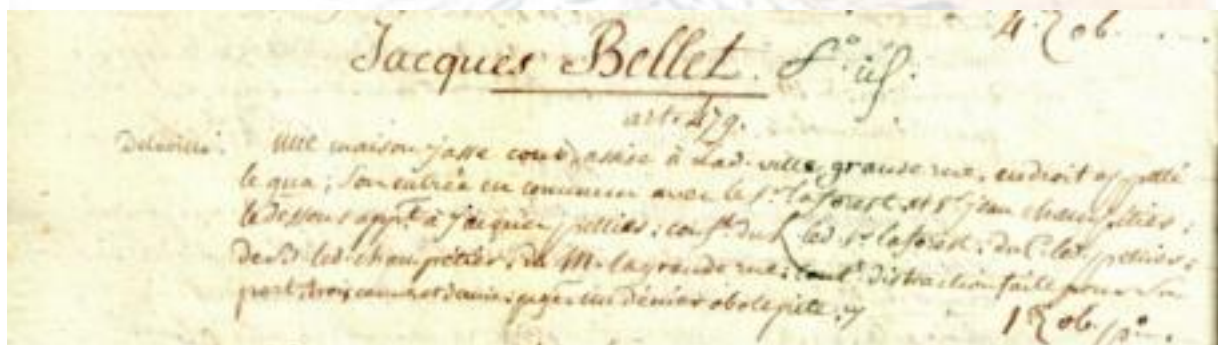 4 ob.
Jacques Bellet.
art. 479.
une maison jasse court, assise à Lad. ville, grande rue, endroit appellé
le qua; Son entrée en commun avec le Sr. laforest, et Sr. jean champetier;
le dessous appt. à jacques pellier; led. Sr. laforest; led. pellier;
led. champetier; du M. la grande rue; distraction faite pour Son
port, trois cannes et demie; un denier obole pite.
1 ob. p.